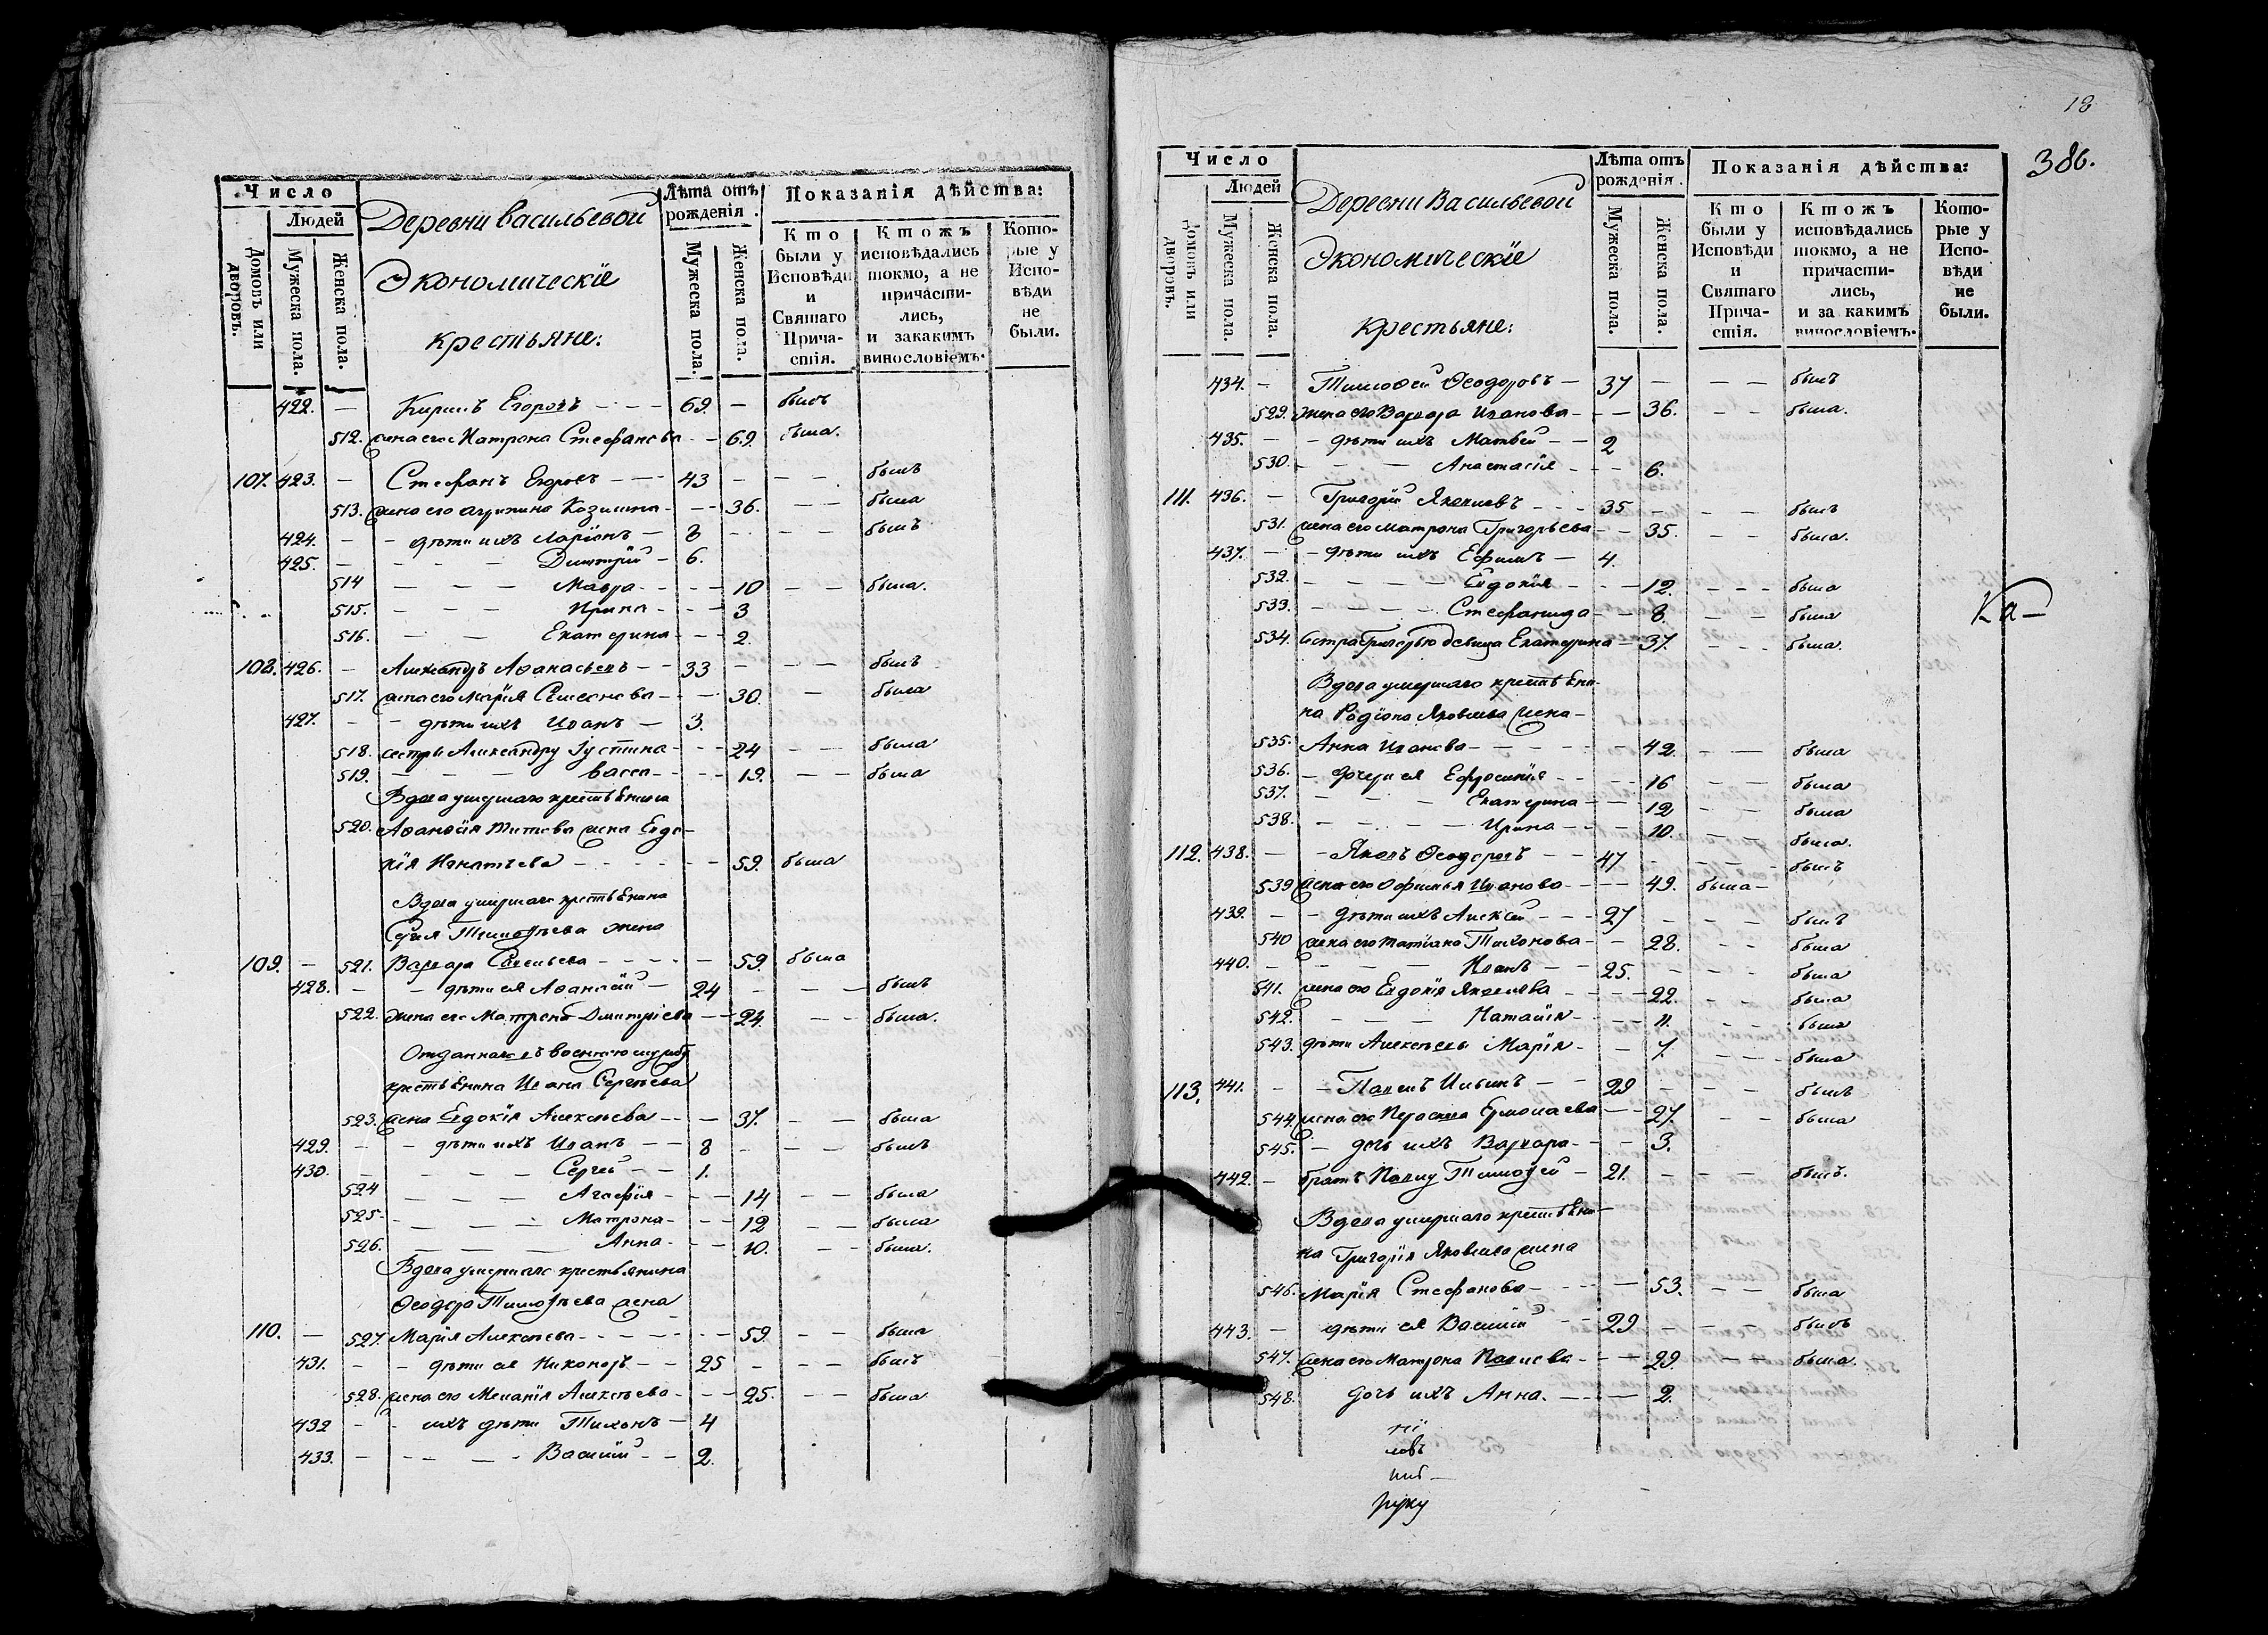 Число
Людей
Домовъ или дворовъ.
Мужеска пола.
Женска пола.
Деревни васильевой
Экономическіе
крестьяне:
Лѣта отъ рожденія.
Мужеска пола.
Женска пола.
Показанія дѣйства:
Кто были у Исповѣди и Святаго Причастія.
Ктожъ исповѣдались токмо, а не причастились, и закакимъ винословіемъ.
Которые у Исповѣди не были.
422. — Кирилъ Егоровъ - - - 69. — былъ
512. жена его Матрона Стефанова - - 69. была.
107. 423. — Стефанъ Егоровъ - - - 43 — — — былъ
513. жена его агрипина Козмина - - - 36. — — была
424. - - дѣти ихъ Ларіонъ — 8 - - - былъ
425. — - - - Димитрій - 6.
514 — — — Мавра - - - - 10 — — была.
515. - — — Ирина - - - 3
516. — — Екатерина - - - 2.
108. 426. — Александръ Аѳанасьевъ - - 33 — — — былъ
517. жена его Марія Симеонова - - - 30. — была
427. - - дѣти ихъ Иванъ — 3.
518. сестры Александру Іустина - - - 24 — — была
519. — — — васса - - - - 19. — — была
Вдова умершаго крестьѣнина
520. Аѳанасія Титова жена Евдо-
кія Игнатьева - - - - - - 59. была
Вдова умершаго крестьѣнина
Сергія Тимоѳѣева жена
109. — 521. Варвара Савельева - - - - — 59. была
428. — - дѣти ея Аѳанасій — 24 - — — былъ
522. жена его Матрона Дмитріева - - 24. - - была.
Отданнаго въ военную службу
крестьѣнина Ивана Сергѣева
523. жена Евдокія Алексѣева - - — 37. - — была
429. — - дѣти ихъ Иванъ - - 8 - — — былъ
430. — - - - Сергей - - 1.
524 — — — Агафія - - - 14 — — была
525. - — — - Матрона - - - 12 - — была
526. — — — Анна - - - 10. - - была.
Вдова умершаго крестьянина
Ѳеодора Тимоѳѣева жена
110. — 527. Марія Алексѣева - - - - - - 59. - — была
431. - - дѣти ея Никоноръ - - 25 - — — былъ
528. жена его Меланія Алексѣева - - - 25. - — была
432 - - ихъ дѣти Тихонъ — 4
433. — - - — - Василій - - 2.
18
386.
Число
Людей
Домовъ или дворовъ.
Мужеска пола.
Женска пола.
Деревни Васильевой
Экономическіе
крестьяне:
Лѣта отъ рожденія.
Мужеска пола.
Женска пола.
Показанія дѣйства:
Кто были у Исповѣди и Святаго Причастія.
Ктожъ исповѣдались токмо, а не причастились, и за какимъ винословіемъ.
Которые у Исповѣди не были.
434. — Тимоѳей Ѳеодоровъ — 37 — — — былъ
529. жена его Варвара Иванова - - — 36. - - была.
435. — - дѣти ихъ Матвей - - 2
530. — - — Анастасія - - - 6.
111. 436. — Григорій Яковлевъ - - - 35 — - — былъ
531. жена его Матрона Григорьева - - 35. - - была.
437. - - дѣти ихъ Ефимъ — 4.
532. - — — - Евдокія - - - 12. - - - была
533. - — - - Стефанида - - 8. - — была
534. Сестра Григорью девица Екатерина — 37. - - - была.
Вдова умершаго крестьѣни-
на Родіона Яковлева жена —
535. Анна Иванова - - - - - - 42. - — была
536. — дочери ея Ефросинія - - - - 16 — — была
537. - — - Екатерина - - - 12 - — была
538. - — - - Ирина - - - - 10. - — была.
112. 438. — - Яковъ Ѳеодоровъ - - 47 - - - былъ
539 жена его Офимья Иванова - - - - 49. была —
439. — - дѣти ихъ Алексей - - - 27 — - - былъ
540 жена его татіана Тихонова - - - 28. - - была
440. — - - — Иванъ - - 25. — - - была
541. жена его Евдокія Яковлева - - - - 22. - - была
542. - — — Наталія - - - - 11. - - была
543. дѣти Алексѣевы Марія - - - 7. - - - была
113. 441. - - Павелъ Ильинъ - - 29 — - - былъ
544. жена его Параскева Ермолаева - - 27. - - была
545. — дочь ихъ Варвара - - - 3.
442. — братъ Павлу Тимоѳей — 21. - — — былъ.
Вдова умершаго крестьѣни-
на Григорія Яковлева жена
546. Марія Стефанова - - - - — 53. - — была
443. — дѣти ея Василій - - 29 - — - былъ
547. жена его Матрона Павлова - - - 29. - — была.
548. дочь ихъ Анна. - - - - 2.
Ка —
ловъ
руку